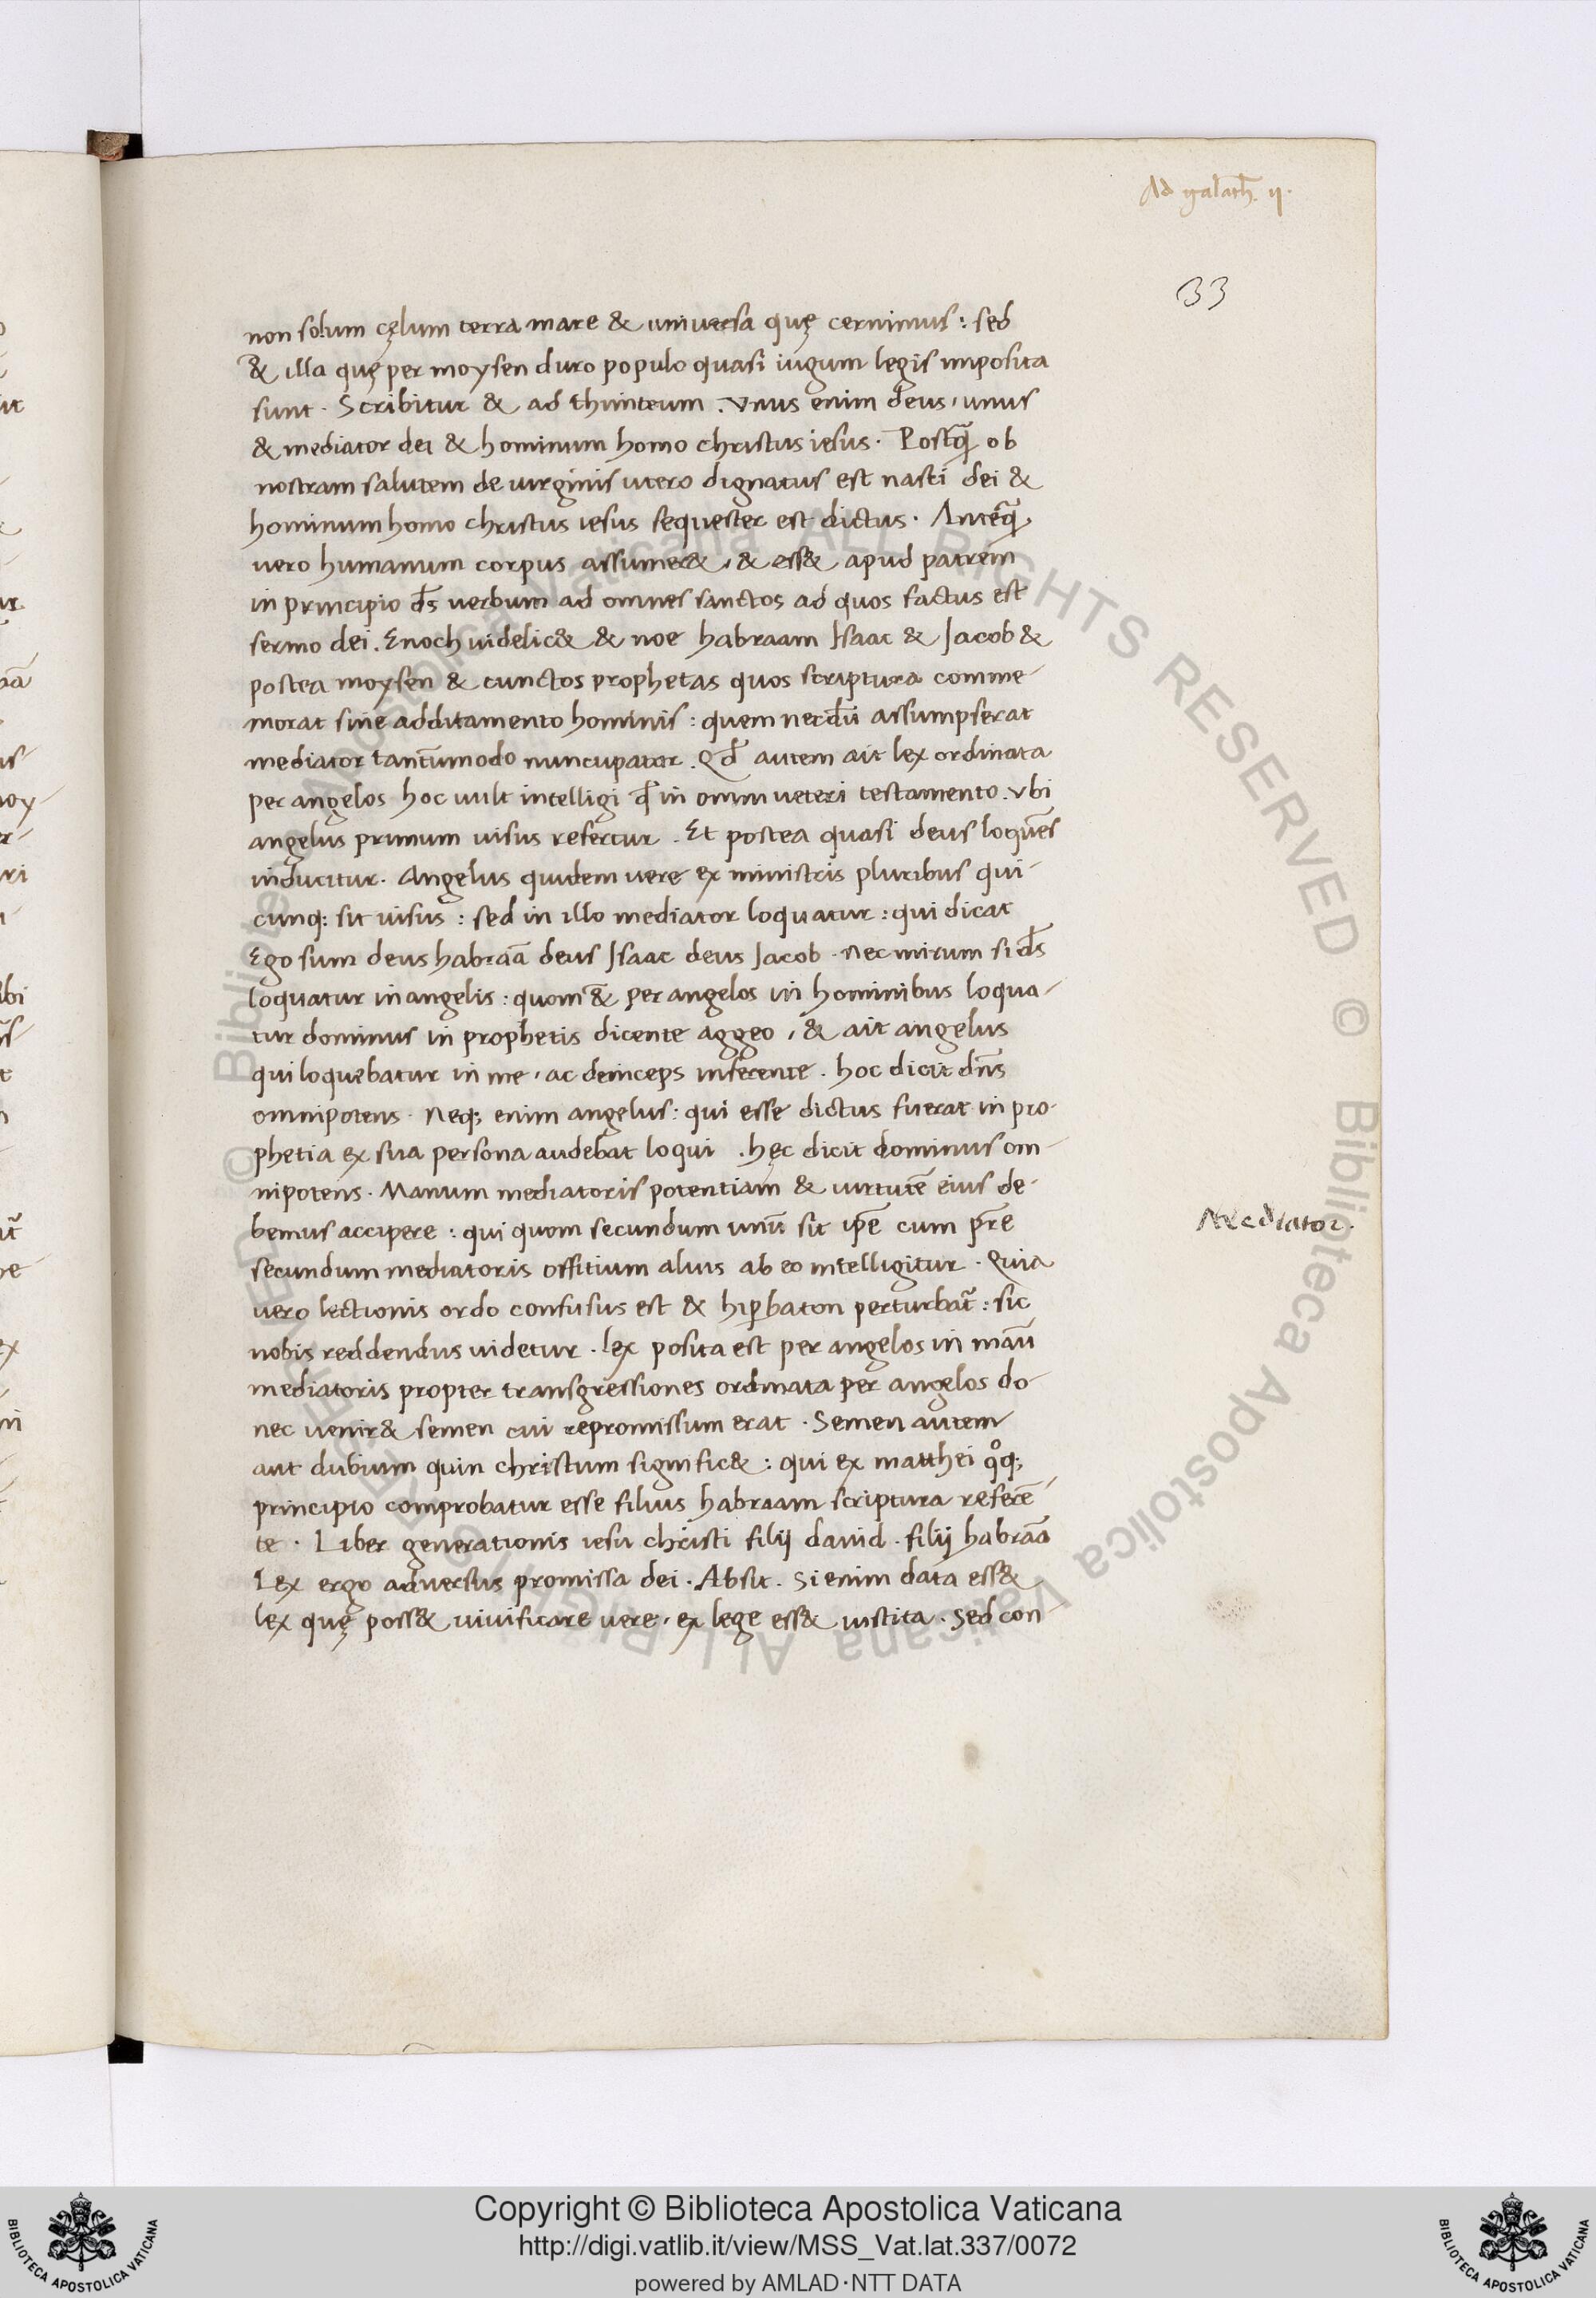 Ad galath̄. ij.
33
non solum cęlum terra mare & uniuersa quę cernimus : sed
& illa quę per moysen duro populo quasi iugum legis imposita
sunt . Scribitur & ad thimteum . Vnus enim deus , unus
& mediator dei & hominum homo christus iesus . Postq̄ ob
nostram salutem de uirginis utero dignatus est nasci dei &
hominum homo christus iesus sequester est dictus . Anteq̄
uero humanum corpus assumer& , & ess& apud patrem
in principio d̄s uerbum ad omnes sanctos ad quos factus est
sermo dei . Enoch uidelic& & noe habraam Isaac & Jacob &
postea moysen & cunctos prophetas quos scriptura comme-
morat sine additamento hominis : quem necdū assumpserat
mediator tantūmodo nuncupatur . Qđ autem ait lex ordinata
per angelos hoc uult intelligi qđ in omni ueteri testamento . vbi
angelus primum uisus refertur . Et postea quasi deus loquēs
inducitur . Angelus quidem uere ex ministris pluribus qui-
cunq; sit uisus : sed in illo mediator loquatur : qui dicat
Ego sum deus habraā deus Isaac deus Jacob . nec mirum si d̄s
loquatur in angelis : quom &̄ per angelos in hominibus loqua-
tur dominus in prophetis dicente aggeo , & ait angelus
qui loquebatur in me , ac deinceps inferente . hoc dicit dn̄s
omnipotens . neq; enim angelus : qui esse dictus fuerat in pro-
phetia ex sua persona audebat loqui . hęc dicit dominus om-
nipotens . Manum mediatoris potentiam & uirtutē eius de-
bemus accipere : qui quom secundum unū sit ip̄e cum pr̄e
Mediator .
secundum mediatoris offitium alius ab eo intelligitur . Quia
uero lectionis ordo confusus est & hip̱baton perturbat̄ : sic
nobis reddendus uidetur . lex posita est per angelos in manū
mediatoris propter transgressiones ordinata per angelos do-
nec uenir& semen cui repromissum erat . Semen autem
aut dubium quin christum signific& : qui ex matthei qͦq;
principio comprobatur esse filius habraam scriptura referē-
te . Liber generationis iesu christi filij dauid . filij habraā
Lex ergo aduersus promissa dei . Absit . Si enim data ess&
lex quę poss& uiuificare uere , ex lege ess& iustita . Sed con-
Copyright © Biblioteca Apostolica Vaticana
http://digi.vatlib.it/view/MSS_Vat.lat.337/0072
powered by AMLAD·NTT DATA